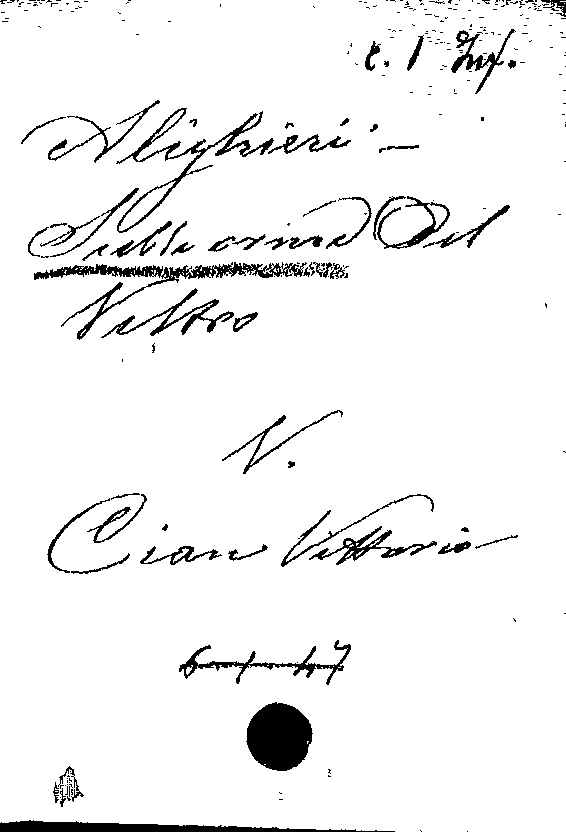 c. 1 Inf.
Alighieri -
Sulle orme del
Veltro
V.
Cian Vittorio
6-1-47